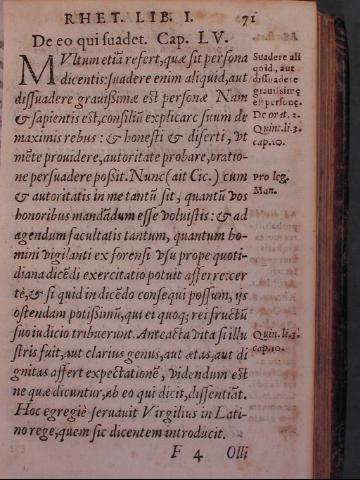 RHET. LIB. I. 71
De eo qui suadet. Cap. LV.
MVltum etiã refert, quæ sit persona
dicentis: suadere enim aliquid, aut
dissuadere grauissimæ est personæ Nam
& sapientis est, consiliũ explicare suum de
maximis rebus: & honesti & diserti, vt
mẽte prouidere, autoritate probare, oratio-
ne persuadere possit. Nunc (ait Cic.) cum
& autoritatis in me tantũ sit, quantũ vos
honoribus mandãdum esse voluistis: & ad
agendum facultatis tantum, quantum ho-
mini vigilanti ex forensi vsu prope quoti-
diana dicẽdi exercitatio potuit afferre: cer
tè, & si quid in dicẽdo consequi possum, ijs
ostendam potissimũ, qui ei quoq; rei fructũ
suo iudicio tribuerunt. Anteacta vita si illu
stris fuit, aut clarius genus, aut ætas, aut di
gnitas affert expectationẽ, videndum est
ne quæ dicuntur, ab eo qui dicit, dissentiãt.
Hoc egregiè seruauit Virgilius in Lati-
no rege, quem sic dicentem introducit.
F 4 Olli
Suadere ali
quid, aut
dissuadere
grauissimę
est personę.
De orat. 2.
Quin. li. 3.
cap. 10.
pro leg.
Man.
Quin. li. 3.
cap. 10.